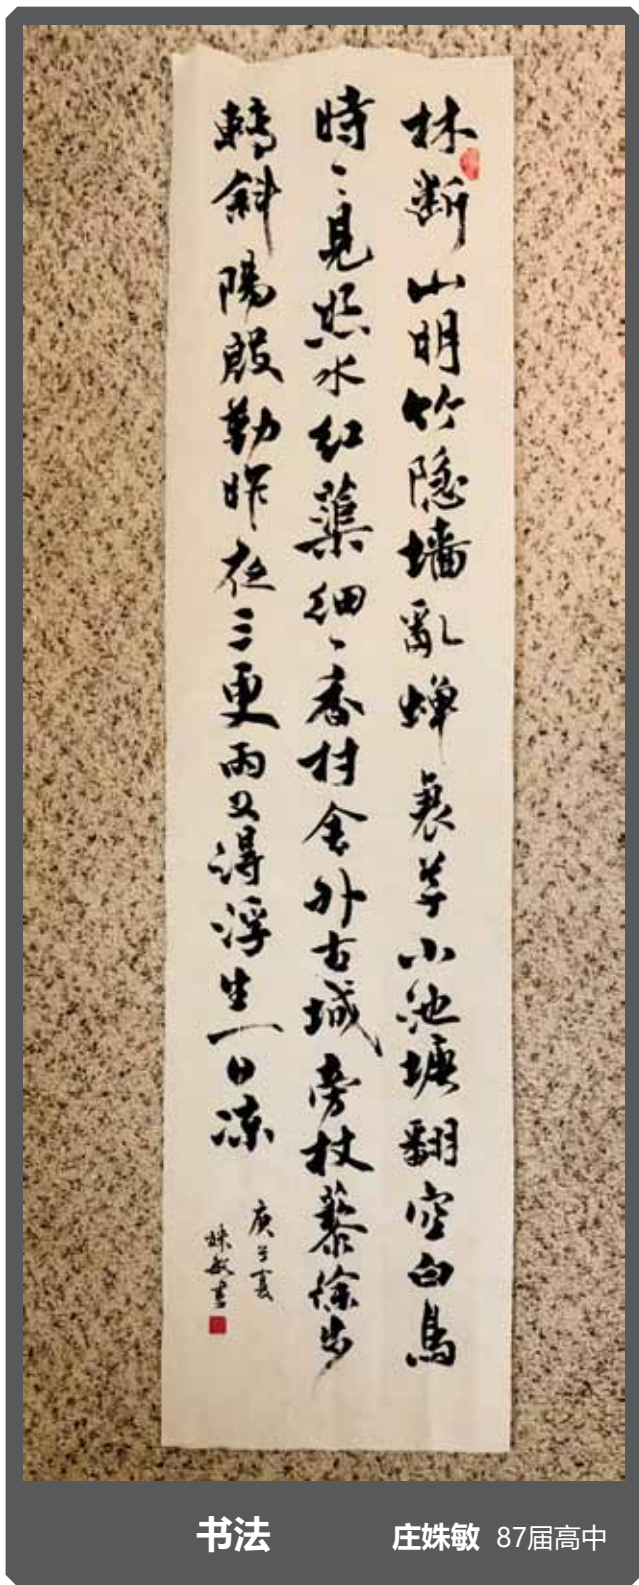 林断山明竹隐墙亂蟬衰草小池塘翻空白鳥
時〻見照水紅蕖細〻香村舍外古城旁杖藜徐步
轉斜陽殷勤昨夜三更雨又得浮生一日凉
庚子夏
姝敏書
书法
庄姝敏 87届高中